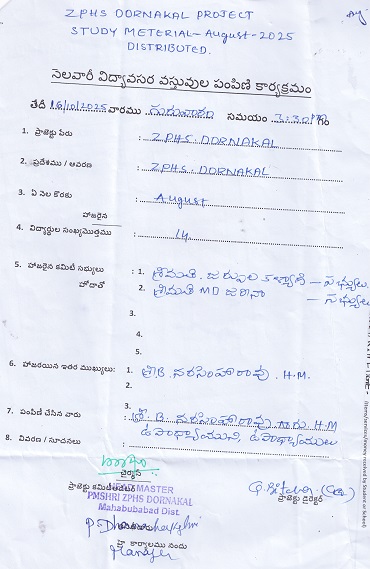 ZPHS DORNAKAL PROJECT
STUDY METERIAL - August - 2025
DISTRIBUTED.
నెలవారీ విద్యావసర వస్తువుల పంపిణి కార్యక్రమం
తేదీ 16/10/2025 వారము గురువారం సమయం 3:30 గం
1. ప్రాజెక్టు పేరు : ZPHS. DORNAKAL
2. ప్రదేశము / ఆవరణ : ZPHS. DORNAKAL
3. ఏ నెల కొరకు : August
హాజరైన
4. విద్యార్థుల సంఖ్య మొత్తము : 14
5. హాజరైన కమిటీ సభ్యులు : 1. శ్రీమతి. జరుపుల కళ్యాణి - సభ్యులు.
హోదాతో 2. శ్రీమతి MD జరీనా - సభ్యులు
3.
4.
5.
6. హాజరయిన ఇతర ముఖ్యులు: 1. శ్రీ B. నరసింహారావు. H.M.
2.
3.
7. పంపిణి చేసిన వారు : శ్రీ. B. నరసింహారావు గారు. H.M
8. వివరణ / సూచనలు : ఉపాధ్యాయులు
చైర్మన్
ప్రాజెక్టు కమిటీ
MASTER
PMSHRI ZPHS DORNAKAL
Mahabubabad Dist.
ప్రాజెక్టు డైరెక్టర్
కార్యాలయం నందు
Manager